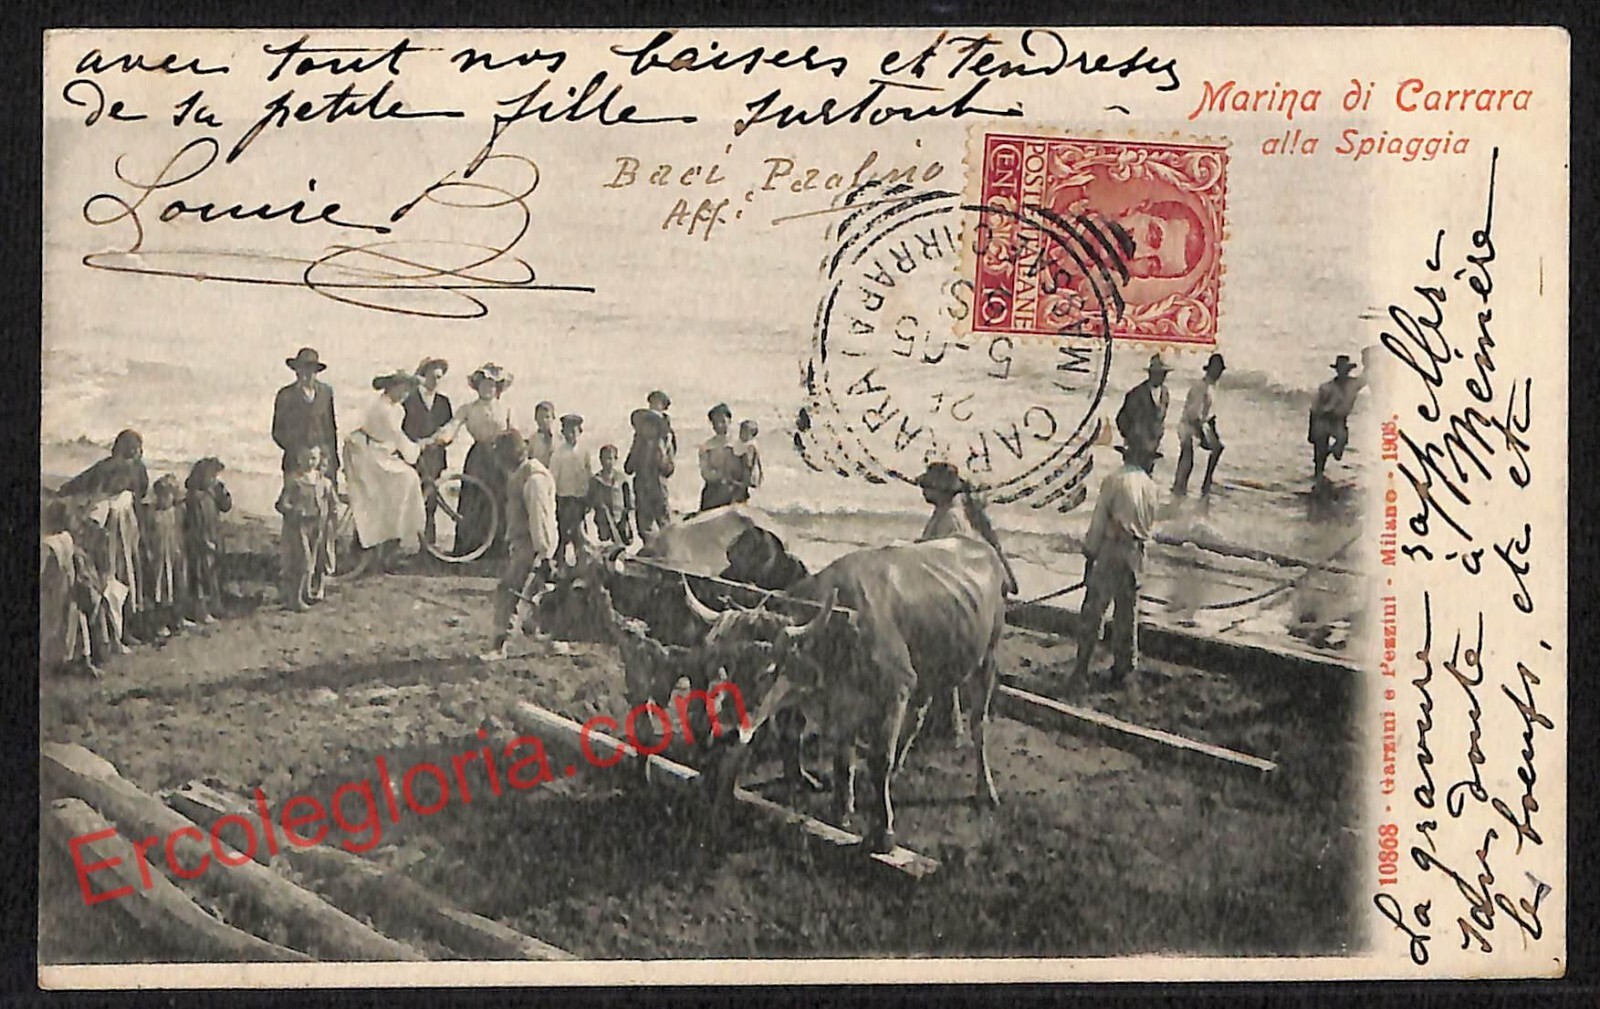 avec tout nos baisers et Tendresses
de sa petite fille surtout
Louise B
Baci Paolino
Aff.i
Marina di Carrara
alla Spiaggia
POSTE ITALIANE
CENT. 10
CARRARA
(MASSA CARRARA)
10868 - Garzini e Pezzini - Milano - 1903.
La gravure rappellera
sans doute à Mémère
les boeufs, etc etc
Ercolegloria.com